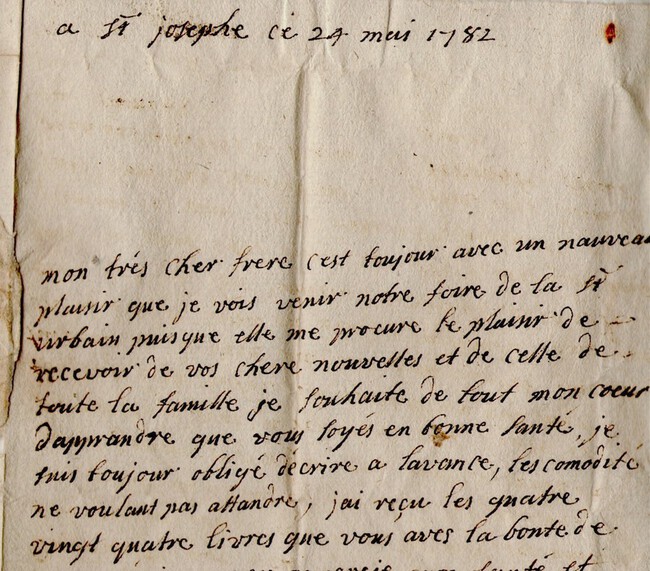 a St josephe ce 24 mai 1782
mon trés cher frere cest toujour avec un nauveau
plaisir que je vois venir notre foire de la St
urbain puisque elle me procure le plaisir de
recevoir de vos chere nouvelles et de celle de
toute la famille je souhaite de tout mon coeur
dapprandre que vous soyés en bonne santé, je
suis toujour obligé décrire a lavance, les comodité
ne voulant pas attandre, jai reçu les quatre
vingt quatre livres que vous aves la bonte de
santé et